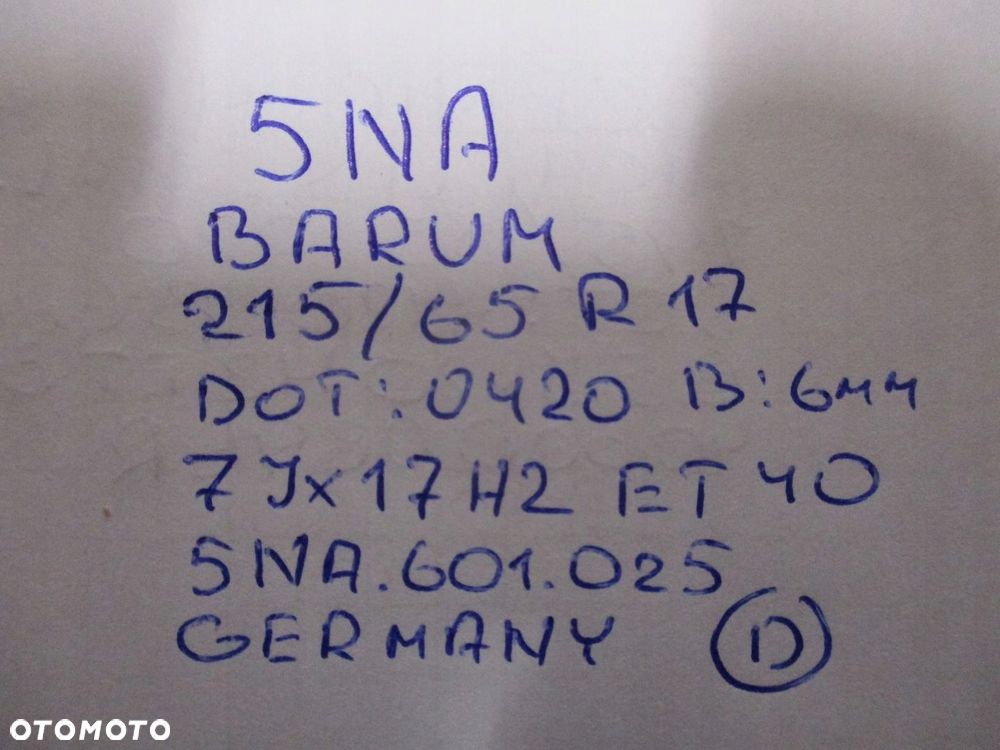 5NA
BARUM
215/65 R 17
DOT: 0420 B: 6mm
7 Jx17 H2 ET 40
5NA.601.025
GERMANY D
OTOMOTO